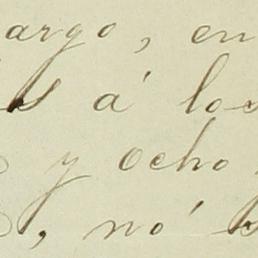 argo, en
á los
y ocho
, nó